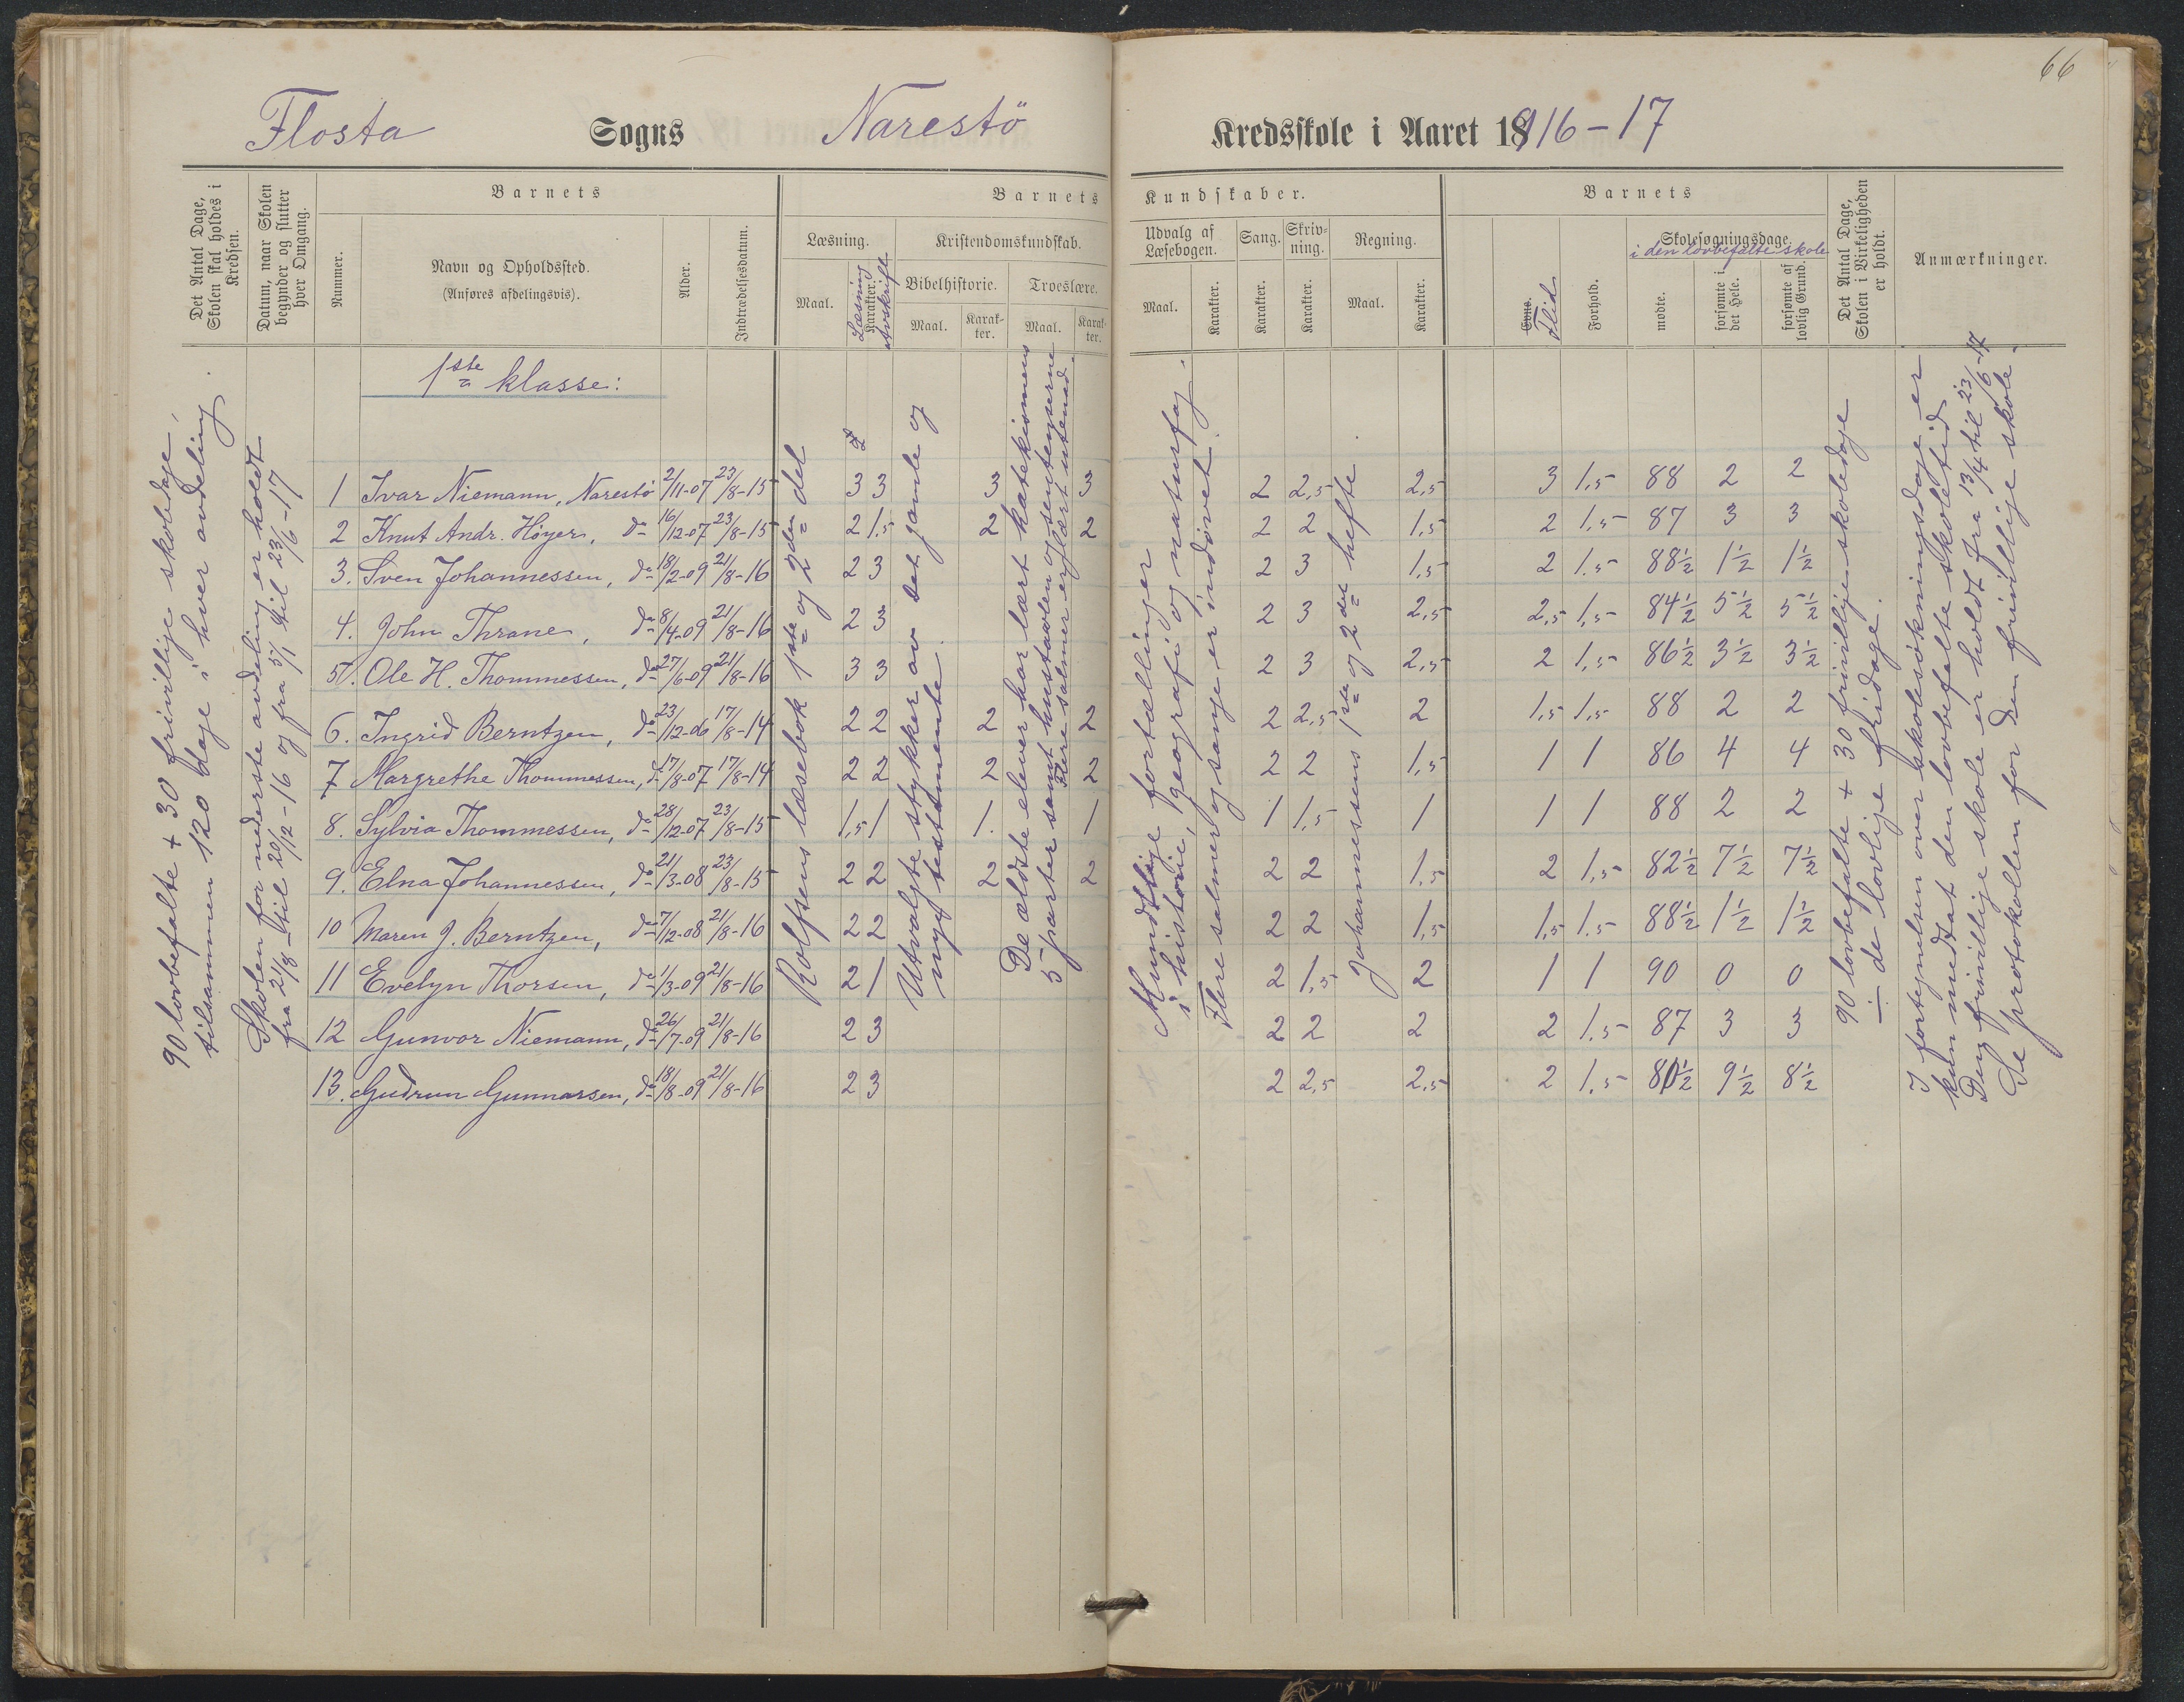 66
Flosta Sogns Narestö Kredsskole i Aaret 1916-17
Det Antal Dage, Skolen skal holdes i Kredsen.
Datum, naar Skolen begynder og slutter hver Omgang.
Barnets
Nummer.
Navn og Opholdssted.
(Anføres afdelingsvis).
Alder.
Indtrædelsesdatum.
Barnets Kundskaber.
Læsning.
Maal.
Læsning
Karakter.
Avskrift
Kristendomskundskab.
Bibelhistorie.
Maal.
Karakter.
Troeslære.
Maal.
Karakter.
Udvalg af Læsebogen.
Maal.
Karakter.
Sang.
Karakter.
Skrivning.
Karakter.
Regning.
Maal.
Karakter.
Barnets
Evne.
Flid
Forhold.
Skolesøgningsdage.
i den lovbefalte skole
mødte.
forsømte i det Hele.
forsømte af lovlig Grund.
Det Antal Dage, Skolen i Virkeligheden er holdt.
Anmærkninger.
1ste klasse:
90 lovbefalte + 30 frivillige skoledage,
tilsammen 120 dage i hver avdeling.
Skolen for nederste avdeling er holdt
fra 21/8 til 20/12-16 og fra 5/1 til 23/6-17
Rolfsens læsebok 1ste og 2den del
Utvalgte stykker av det gamle og
nye testamente.
De ældste elever har lært katekismens
5 parter samt hustavlen og sentenserne
Flere salmer er lært utenad.
Mundtlige fortællinger
i historie, geografi og naturfag.
Flere salmer og sange er indøvet.
Johannessens 1ste og 2det hefte
90 lovbefalte + 30 frivillige skoledage
÷ de lovlige fridage.
I fortegnelsen over skolesøkningsdage er
kun medtat den lovbefalte skoletid
Den frivillige skole er holdt fra 13/4 til 23/6-17
Se protokollen for den frivillige skole.
1 Ivar Niemann, Narestö 2/11-07 23/8-15 3 3 3 3 2 2,5 2,5 3 1,5 88 2 2
2 Knut Andr. Høyer, do 16/12-07 23/8-15 2 1,5 2 2 2 2 1,5 2 1,5 87 3 3
3. Sven Johannessen, do 18/2-09 21/8-16 2 3 2 3 1,5 2 1,5 88½ 1½ 1½
4. John Thrane, do 8/4-09 21/8-16 2 3 2 3 2,5 2,5 1,5 84½ 5½ 5½
5. Ole H. Thommessen, do 27/6-09 21/8-16 3 3 2 3 2,5 2 1,5 86½ 3½ 3½
6. Ingrid Berntzen, do 23/12-06 17/8-14 2 2 2 2 2 2,5 2 1,5 1,5 88 2 2
7 Margrethe Thommessen, do 17/8-07 17/8-14 2 2 2 2 2 2 1,5 1 1 86 4 4
8. Sylvia Thommessen, do 28/12-07 23/8-15 1,5 1 1. 1 1 1,5 1 1 1 88 2 2
9. Elna Johannessen, do 21/3-08 23/8-15 2 2 2 2 2 2 1,5 2 1,5 82½ 7½ 7½
10 Maren J. Berntzen, do 7/12-08 21/8-16 2 2 2 2 1,5 1,5 1,5 88½ 1½ 1½
11 Evelyn Thorsen, do 1/3-09 21/8-16 2 1 2 1,5 2 1 1 90 0 0
12 Gunvor Niemann, do 26/7-09 21/8-16 2 3 2 2 2 2 1,5 87 3 3
13. Gudrun Gunnarsen, do 18/8-09 21/8-16 2 3 2 2,5 2,5 2 1,5 80½ 9½ 8½